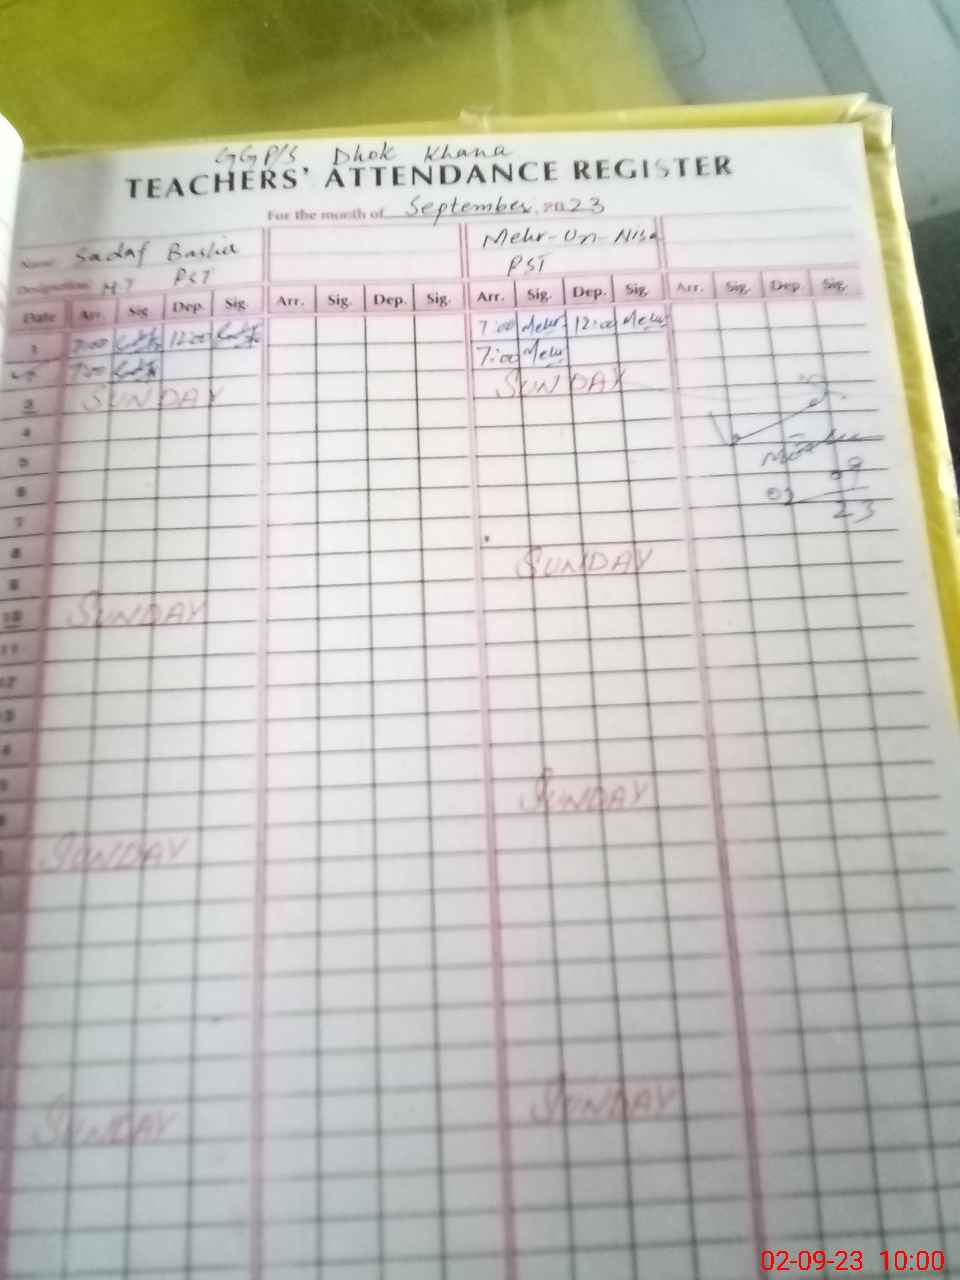 GGP/S Dhok Khana
TEACHERS' ATTENDANCE REGISTER
For the month of September 2023
Name Sadaf Bashir Mehr-Un-Nisa
Designation H.T PST PST
Date Arr. Sig. Dep. Sig. Arr. Sig. Dep. Sig. Arr. Sig. Dep. Sig. Arr. Sig. Dep. Sig.
1 7:00 12:00 7:00 Mehr 12:00 Mehr
7:00 7:00 Mehr
3 SUNDAY SUNDAY
4
5
6 09
7 02 23
8 SUNDAY
9
10 SUNDAY
11
12
13
SUNDAY
SUNDAY
SUNDAY
SUNDAY
02-09-23 10:00